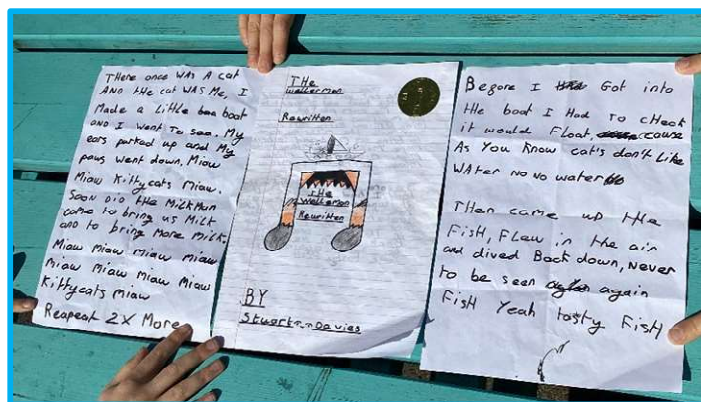 THere once WAS A cat
AND the cat WAS Me, I
Made a little boat
AND I went To sea. My
ears parked up and My
paws went down, Miaw
Miaw Kittycats Miaw.
Soon DiD the MilkMun
came to bring us Milk
AND to bring More Milk.
Miaw Miaw Miaw Miaw
Miaw Miaw Miaw Miaw
Kittycats Miaw
Reapeat 2X More
THe
Wellerman
Rewritten
THe
Wellerman
Rewritten
BY
Stuart Davies
Before I Got into
the boat I HaD To cHeck
it would Float, cause
As You Know cat's don't Like
WAter no no water
THen came up the
FisH, FLew in the air
and dived Back down, Never
to be seen again
FisH Yeah tasty FisH